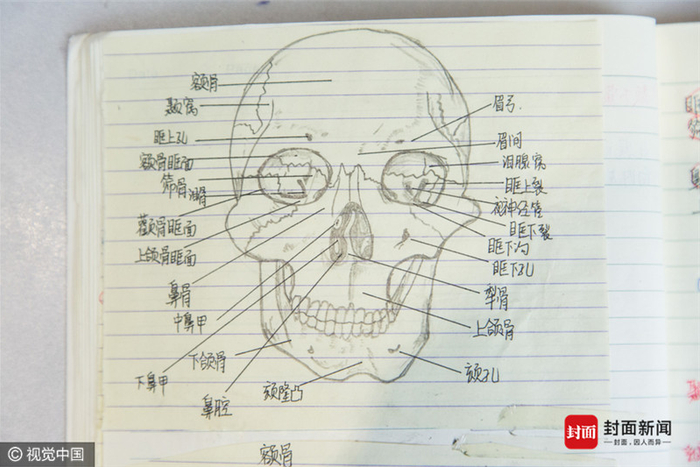 额骨
颞窝
眶上孔
额骨眶面
筛骨 泪骨
颧骨眶面
上颌骨眶面
鼻骨
中鼻甲
下颌骨
下鼻甲
鼻腔
颏隆凸
眉弓.
眉间
泪腺窝
眶上裂
视神经管
眶下裂
眶下沟
眶下孔
犁骨
上颌骨
颏孔
额骨
封面 封面新闻
—封面，因人而异—
© 视觉中国